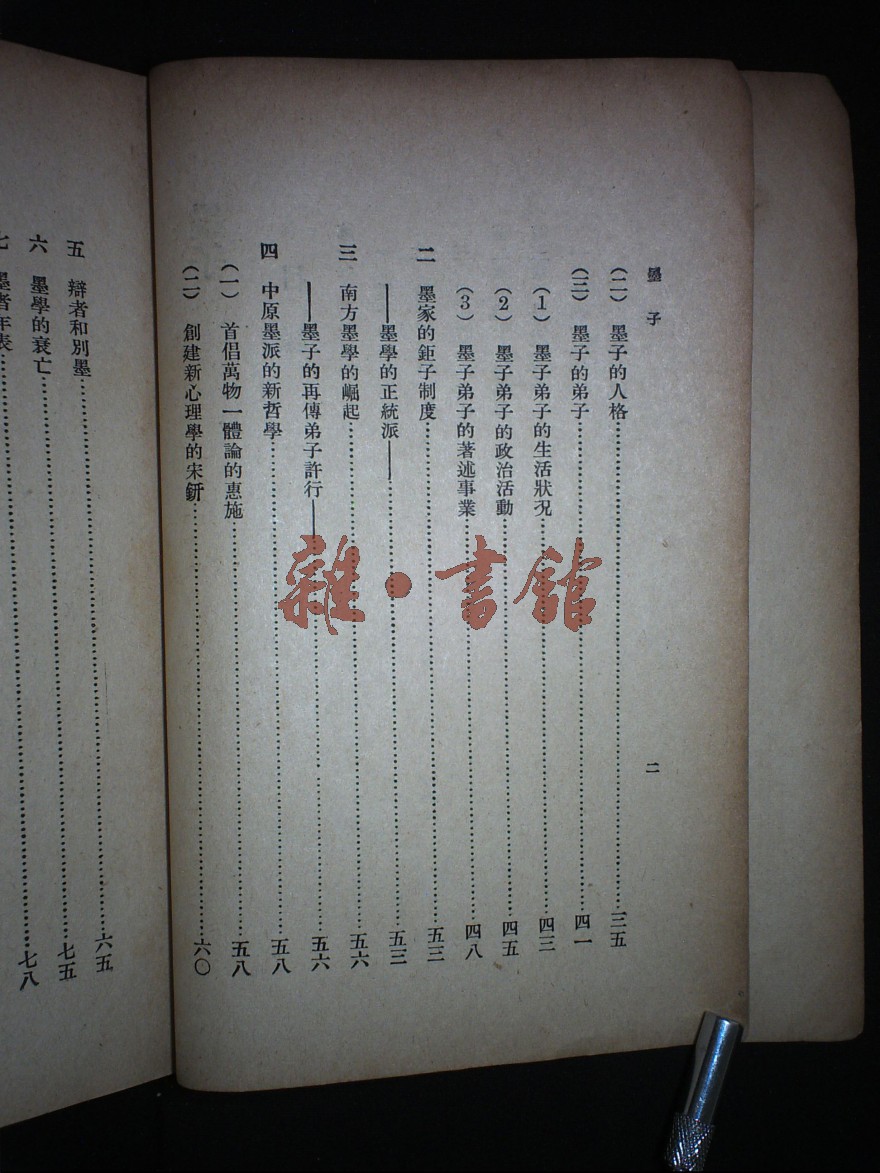 墨子
二
（二） 墨子的人格……三五
（三） 墨子的弟子……四一
（1） 墨子弟子的生活狀況……四三
（2） 墨子弟子的政治活動……四五
（3） 墨子弟子的著述事業……四八
二 墨家的鉅子制度……五三
——墨學的正統派——……五三
三 南方墨學的崛起……五六
——墨子的再傳弟子許行——……五六
四 中原墨派的新哲學……五八
（一） 首倡萬物一體論的惠施……五八
（二） 創建新心理學的宋鈃……六〇
五 辯者和別墨……六五
六 墨學的衰亡……七五
七 墨者年表……七八
雜·書館